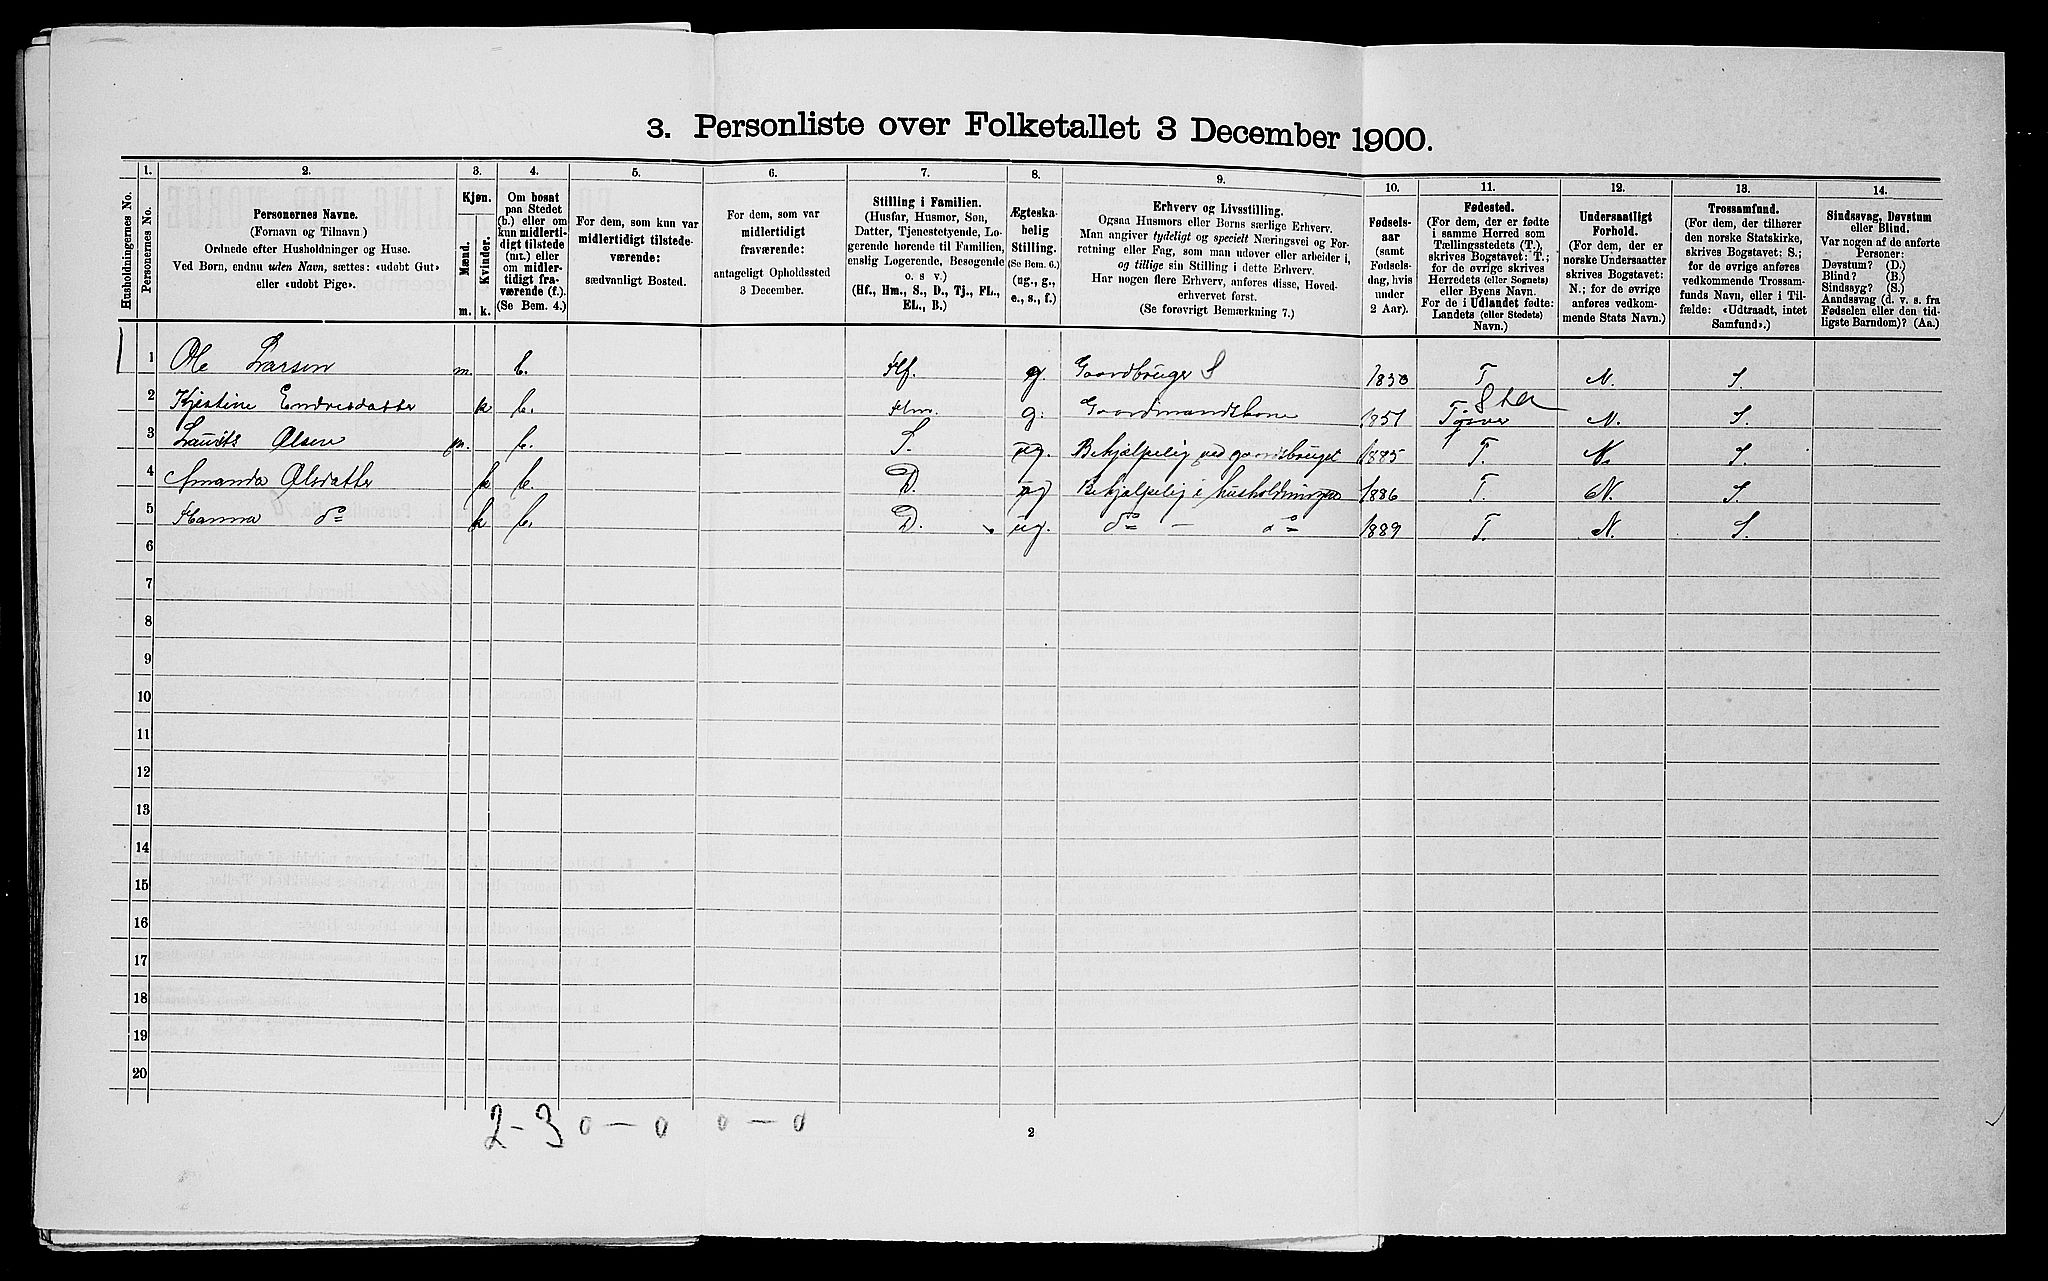 3. Personliste over Folketallet 3 December 1900.
Husholdningernes No.
1.
Personernes No.
2.
Personernes Navne.
(Fornavn og Tilnavn.)
Ordnede efter Husholdninger og Huse.
Ved Børn, endnu uden Navn, sættes: «udøbt Gut»
eller «udøbt Pige».
3.
Kjøn.
Mænd.
Kvinder.
m.
k.
4.
Om bosat
paa Stedet
(b.) eller om
kun midlerti-
digt tilstede
(mt.) eller
om midler-
tidigt fra-
værende (f.).
(Se Bem. 4.)
5.
For dem, som kun var
midlertidigt tilstede-
værende:
sædvanligt Bosted.
6.
For dem, som var
midlertidigt
fraværende:
antageligt Opholdssted
3 December.
7.
Stilling i Familien.
(Husfar, Husmor, Søn,
Datter, Tjenestetyende, Lo-
gerende hørende til Familien,
enslig Logerende, Besøgende
o. s v.)
(Hf., Hm., S., D., Tj., FL.,
EL., B.)
8.
Ægteska-
belig
Stilling.
(Se Bem. 6.)
(ug., g.,
e., s., f.)
9.
Erhverv og Livsstilling.
Ogsaa Husmors eller Børns særlige Erhverv.
Man angiver tydeligt og specielt Næringsvei og For-
retning eller Fag, som man udøver eller arbeider i,
og tillige sin Stilling i dette Erhverv.
Har nogen flere Erhverv, anføres disse, Hoved-
erhvervet først.
(Se forøvrigt Bemærkning 7.)
10.
Fødsels-
aar
(samt
Fødsels-
dag, hvis
under
2 Aar).
11.
Fødested.
(For dem, der er fødte
i samme Herred som
Tællingsstedets (T.),
skrives Bogstavet: T.;
for de øvrige skrives
Herredets (eller Sognets)
eller Byens Navn.
For de i Udlandet fødte:
Landets (eller Stedets)
Navn.)
12.
Undersaatligt
Forhold.
(For dem, der er
norske Undersaatter
skrives Bogstavet:
N.; for de øvrige
anføres vedkom-
mende Stats Navn.)
13.
Trossamfund.
(For dem, der tilhører
den norske Statskirke,
skrives Bogstavet: S.;
for de øvrige anføres
vedkommende Trossam-
funds Navn, eller i Til-
fælde: «Udtraadt, intet
Samfund».)
14.
Sindssvag, Døvstum
eller Blind.
Var nogen af de anførte
Personer:
Døvstum? (D.)
Blind? (B.)
Sindssyg? (S.)
Aandssvag (d. v. s. fra
Fødselen eller den tid-
ligste Barndom)? (Aa.)
1 Ole Larsen m. b. Hf. g. Gaardbruger S 1850 T. N. S.
2 Kjestine Endresdatter k b. Hm. g. Gaardmandskone 1851 N. S.
3 Laurits Olsen m. b. S. ug. Behjælpelig ved gaardsbruget 1885 T. N. S.
4 Amanda Olsdatter k b. D. ug Behjælpelig i husholdningen 1886 T. N. S.
5 Hanna do k b. D. ug. do — do 1889 T. N. S.
6
7
8
9
10
11
12
13
14
15
16
17
18
19
20
2-3 0 — 0 0 — 0
2